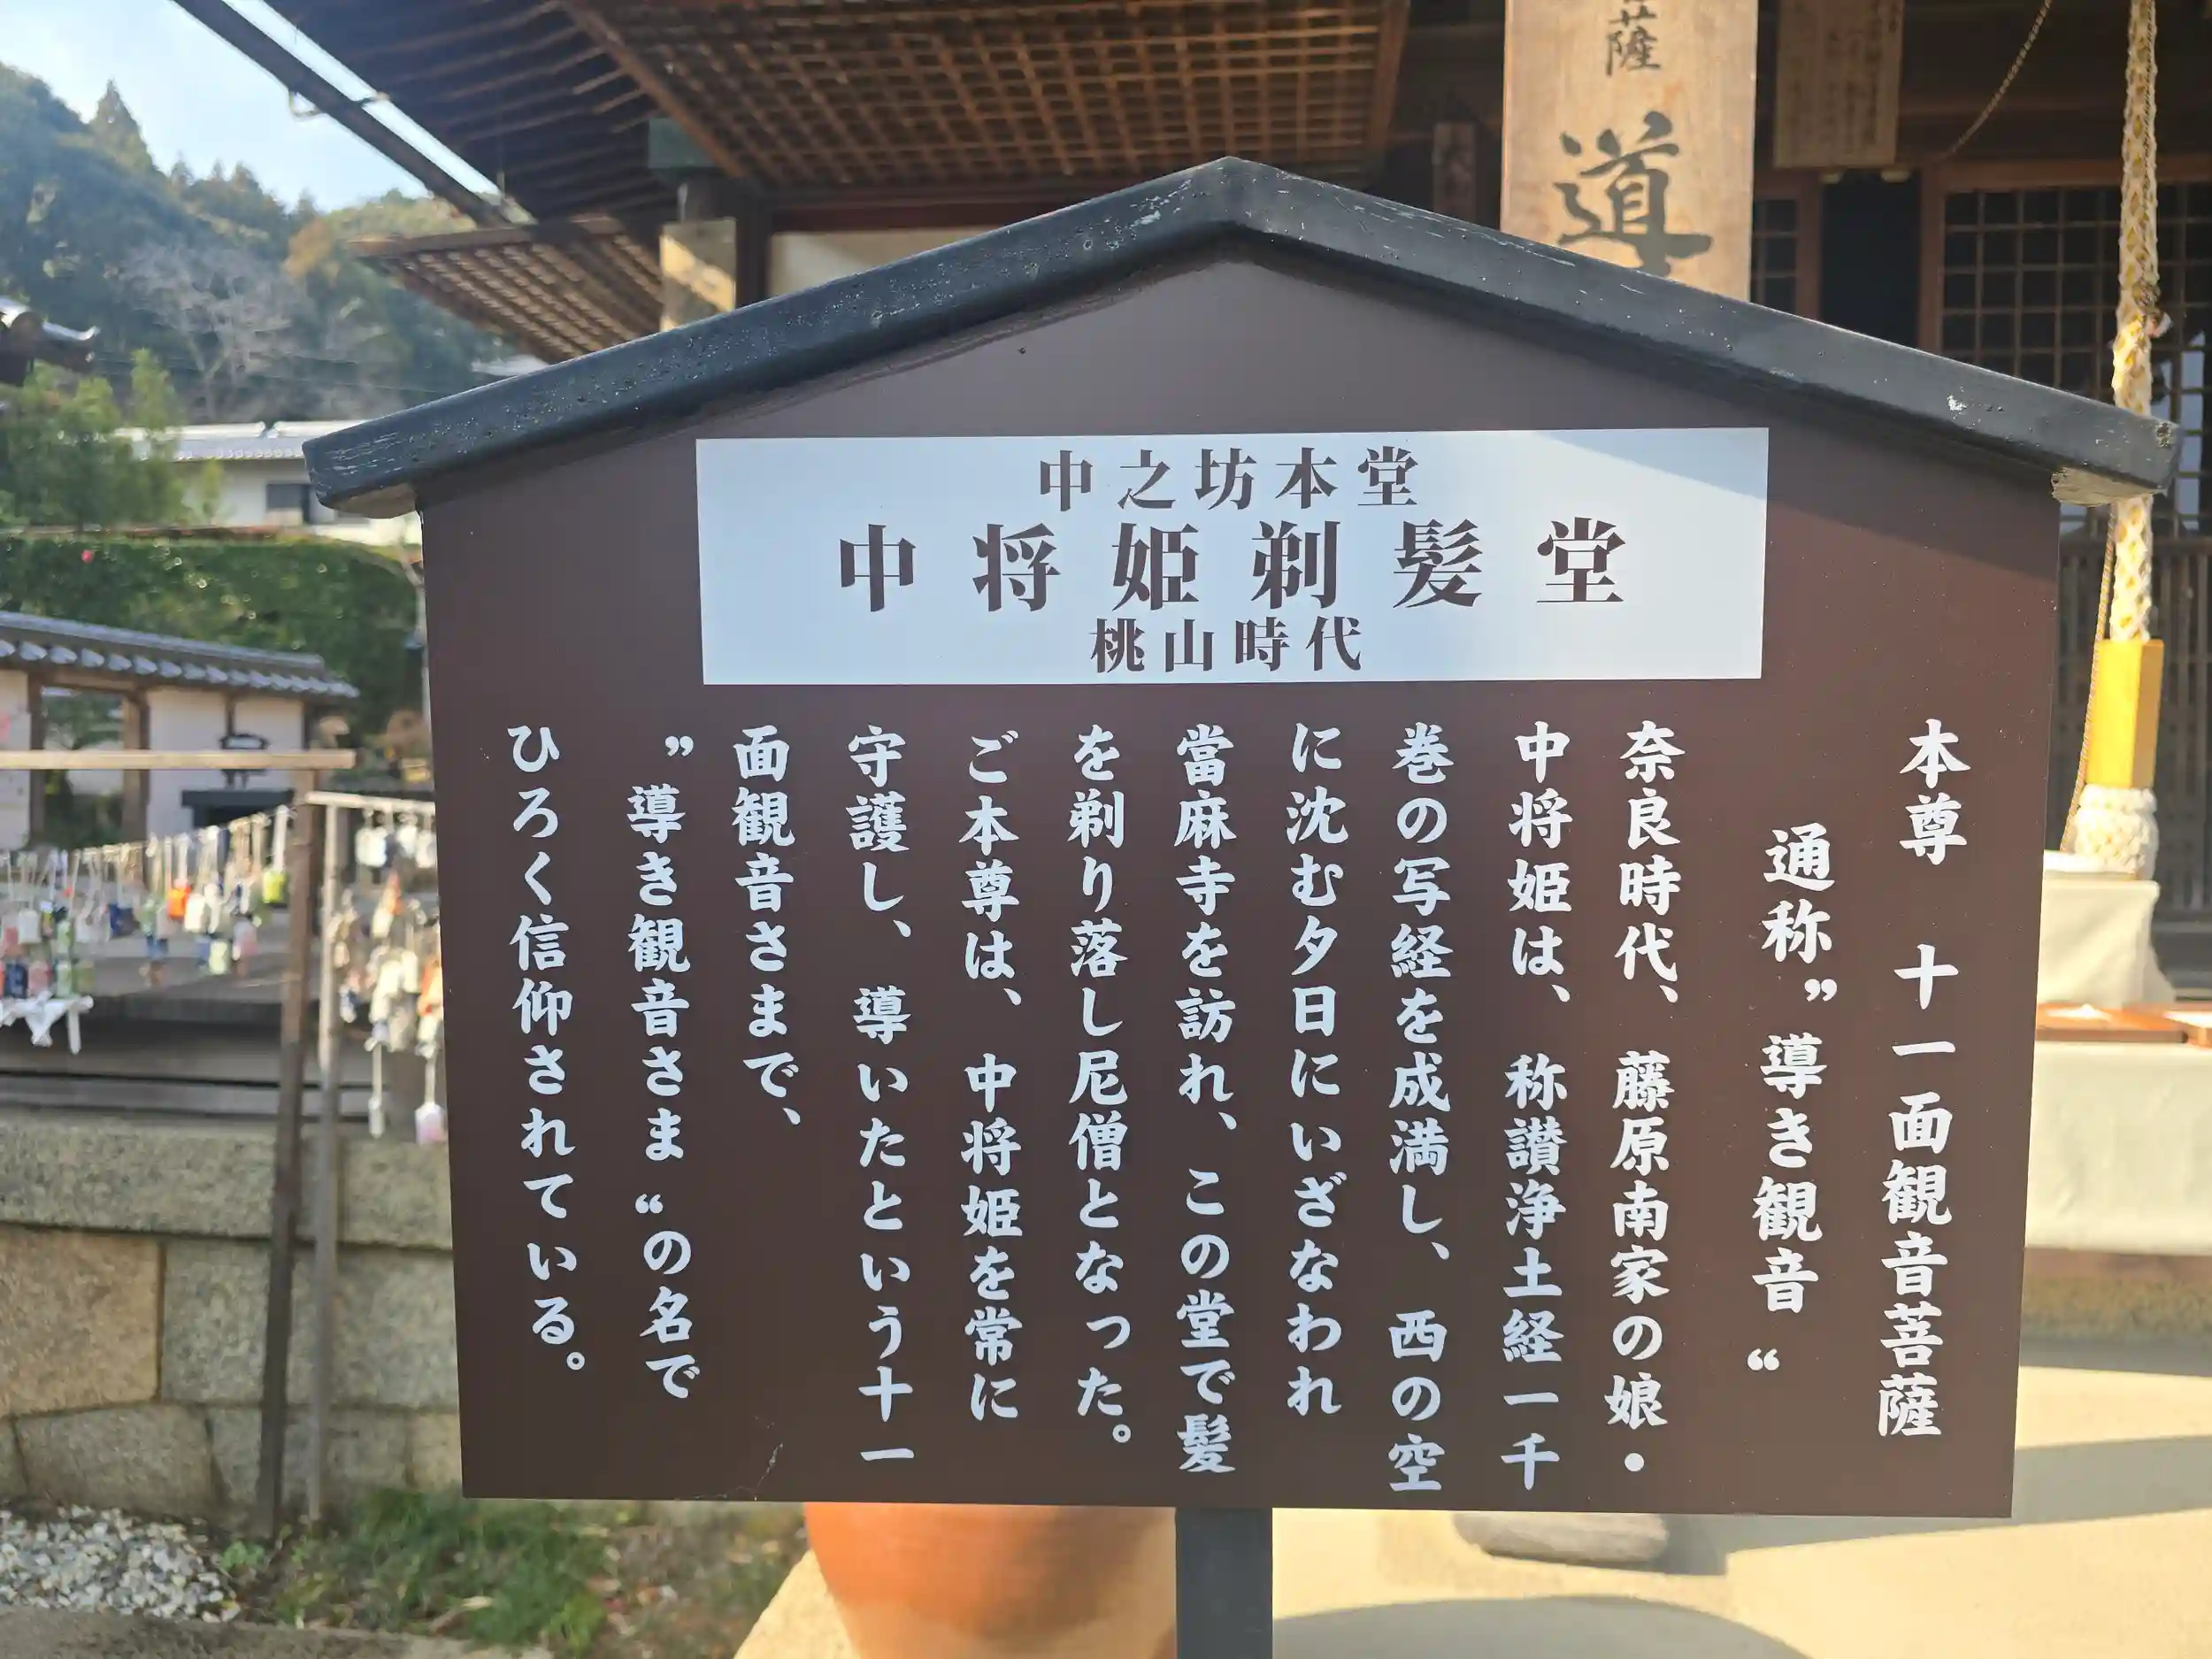 薩
道
中之坊本堂
中将姫剃髪堂
桃山時代
本尊　十一面観音菩薩
通称”導き観音“
奈良時代、藤原南家の娘・
中将姫は、称讃浄土経一千
巻の写経を成満し、西の空
に沈む夕日にいざなわれ
當麻寺を訪れ、この堂で髪
を剃り落し尼僧となった。
ご本尊は、中将姫を常に
守護し、導いたという十一
面観音さまで、
”導き観音さま“の名で
ひろく信仰されている。